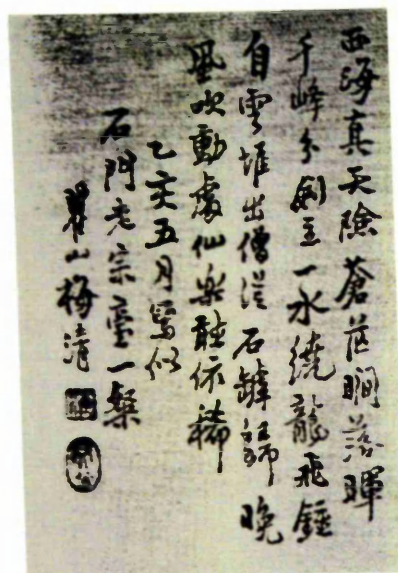 西海真天險蒼茫瞰落暉
千峰分劍立一水繞龍飛鍾
自雲堆出僧從石罅歸晚
風吹動處仙樂聽依稀
乙亥五月寫似
石門老宗臺一粲
瞿山梅清